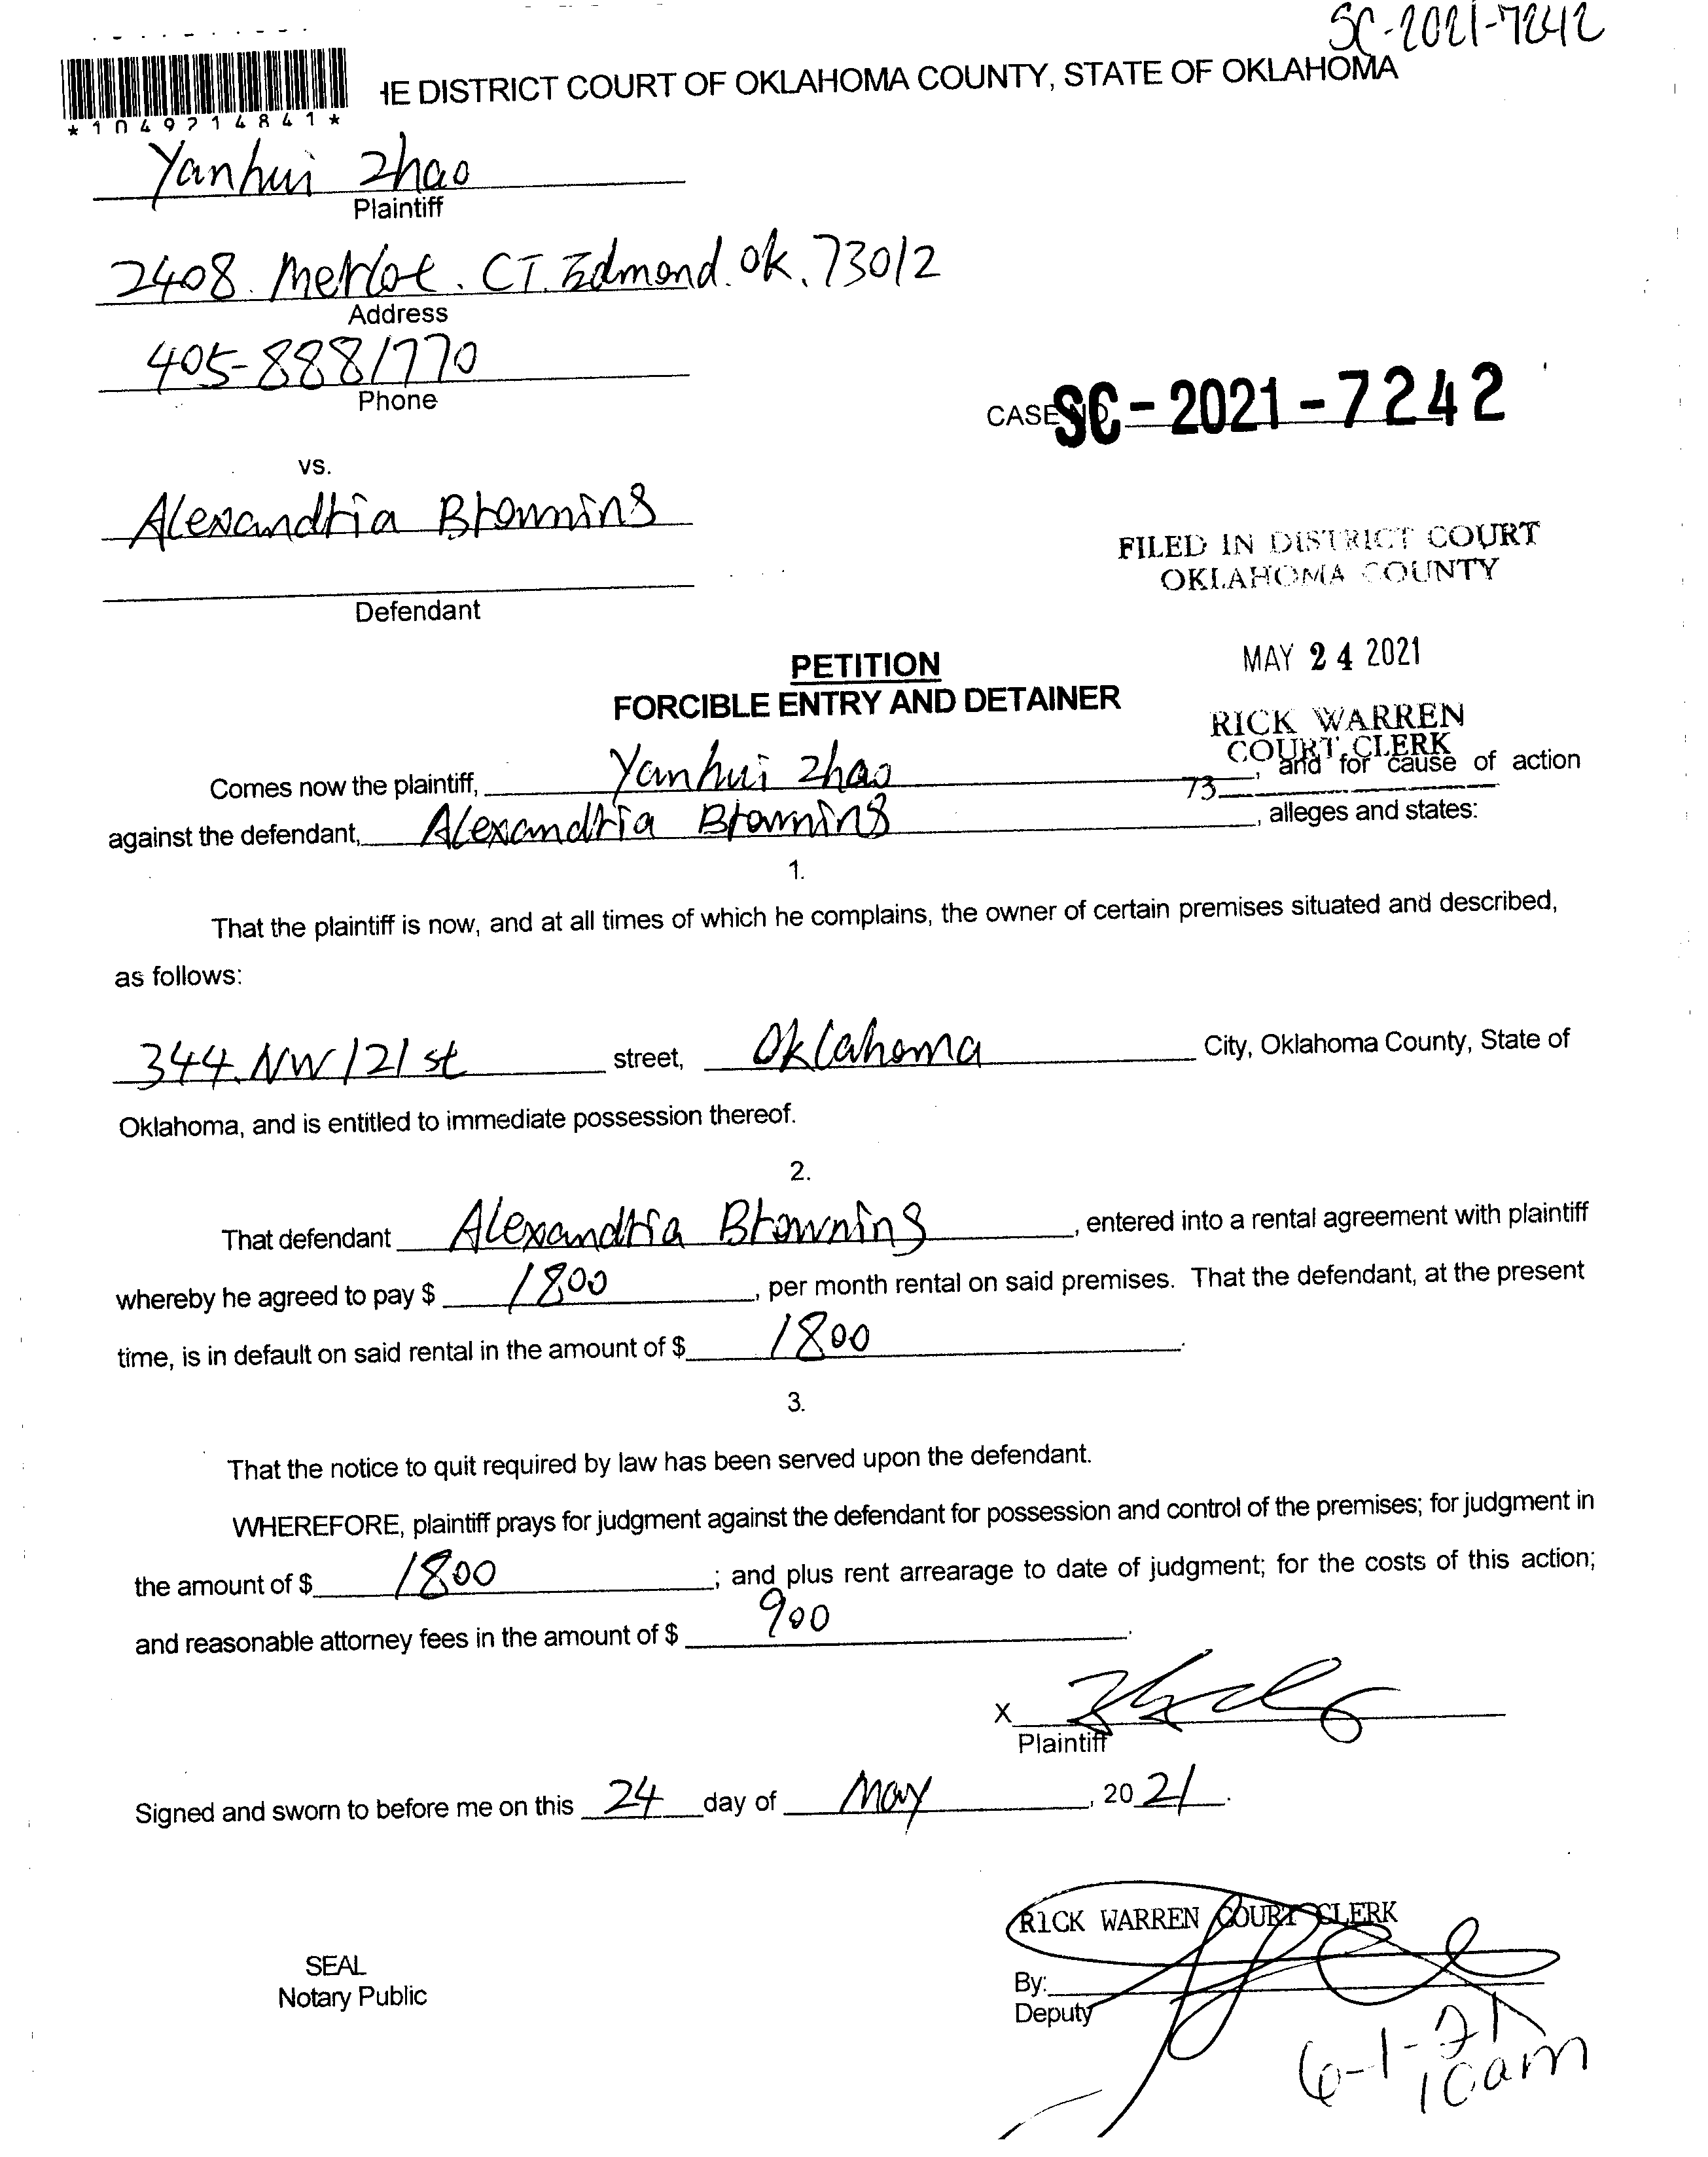 SC-2021-7242
HE DISTRICT COURT OF OKLAHOMA COUNTY, STATE OF OKLAHOMA
*1049714841*
Yanhui Zhao
Plaintiff
2408. Merlot. CT. Edmond. ok. 73012
Address
405-8881770
Phone
CASE NO. SC-2021-7242
vs.
Alexandria Browning
FILED IN DISTRICT COURT
OKLAHOMA COUNTY
Defendant
MAY 24 2021
PETITION
FORCIBLE ENTRY AND DETAINER
RICK WARREN
COURT CLERK
Comes now the plaintiff, Yanhui Zhao, and for cause of action
73
against the defendant, Alexandria Browning, alleges and states:
1.
That the plaintiff is now, and at all times of which he complains, the owner of certain premises situated and described,
as follows:
344. NW 121 st street, Oklahoma City, Oklahoma County, State of
Oklahoma, and is entitled to immediate possession thereof.
2.
That defendant Alexandria Browning, entered into a rental agreement with plaintiff
whereby he agreed to pay $ 1800, per month rental on said premises. That the defendant, at the present
time, is in default on said rental in the amount of $ 1800.
3.
That the notice to quit required by law has been served upon the defendant.
WHEREFORE, plaintiff prays for judgment against the defendant for possession and control of the premises; for judgment in
the amount of $ 1800; and plus rent arrearage to date of judgment; for the costs of this action;
and reasonable attorney fees in the amount of $ 900.
X
Plaintiff
Signed and sworn to before me on this 24 day of May, 2021.
RICK WARREN COURT CLERK
SEAL
Notary Public
By:
Deputy
6-1-21
10am